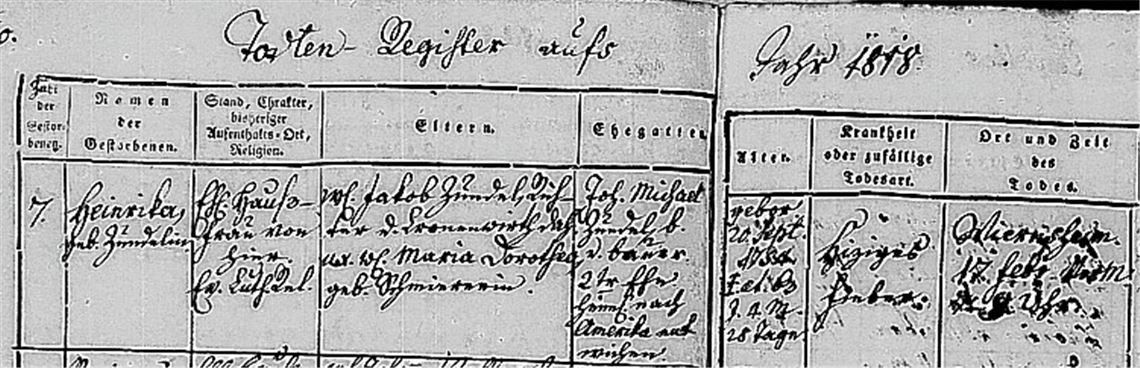 Todten-Register aufs
Jahr 1818.
Zahl
der
Gestor-
benen.
Namen
der
Gestorbenen.
Stand, Chrakter,
bisheriger
Aufenthalts-Ort,
Religion.
Eltern.
Ehegatten.
Alter.
Krankheit
oder zufällige
Todesart.
Ort und Zeit
des
Todes.
7.
Heinrika,
geb. Zündelin
Hauß-
frau von
hier.
Ev. Luth. Rel.
Jakob Zündel, Rich-
ter d. Cronenwirth
Maria Dorothea,
geb. Schmiererin.
Joh. Michael
Zündel, b.
u. bauer.
2tr Ehe
nach
Amerika ent
wichen
gebor.
20 Sept.
J. 4 M.
28 Tage.
Hiziges
Fieber.
Wiernsheim.
17. febr.
Uhr.